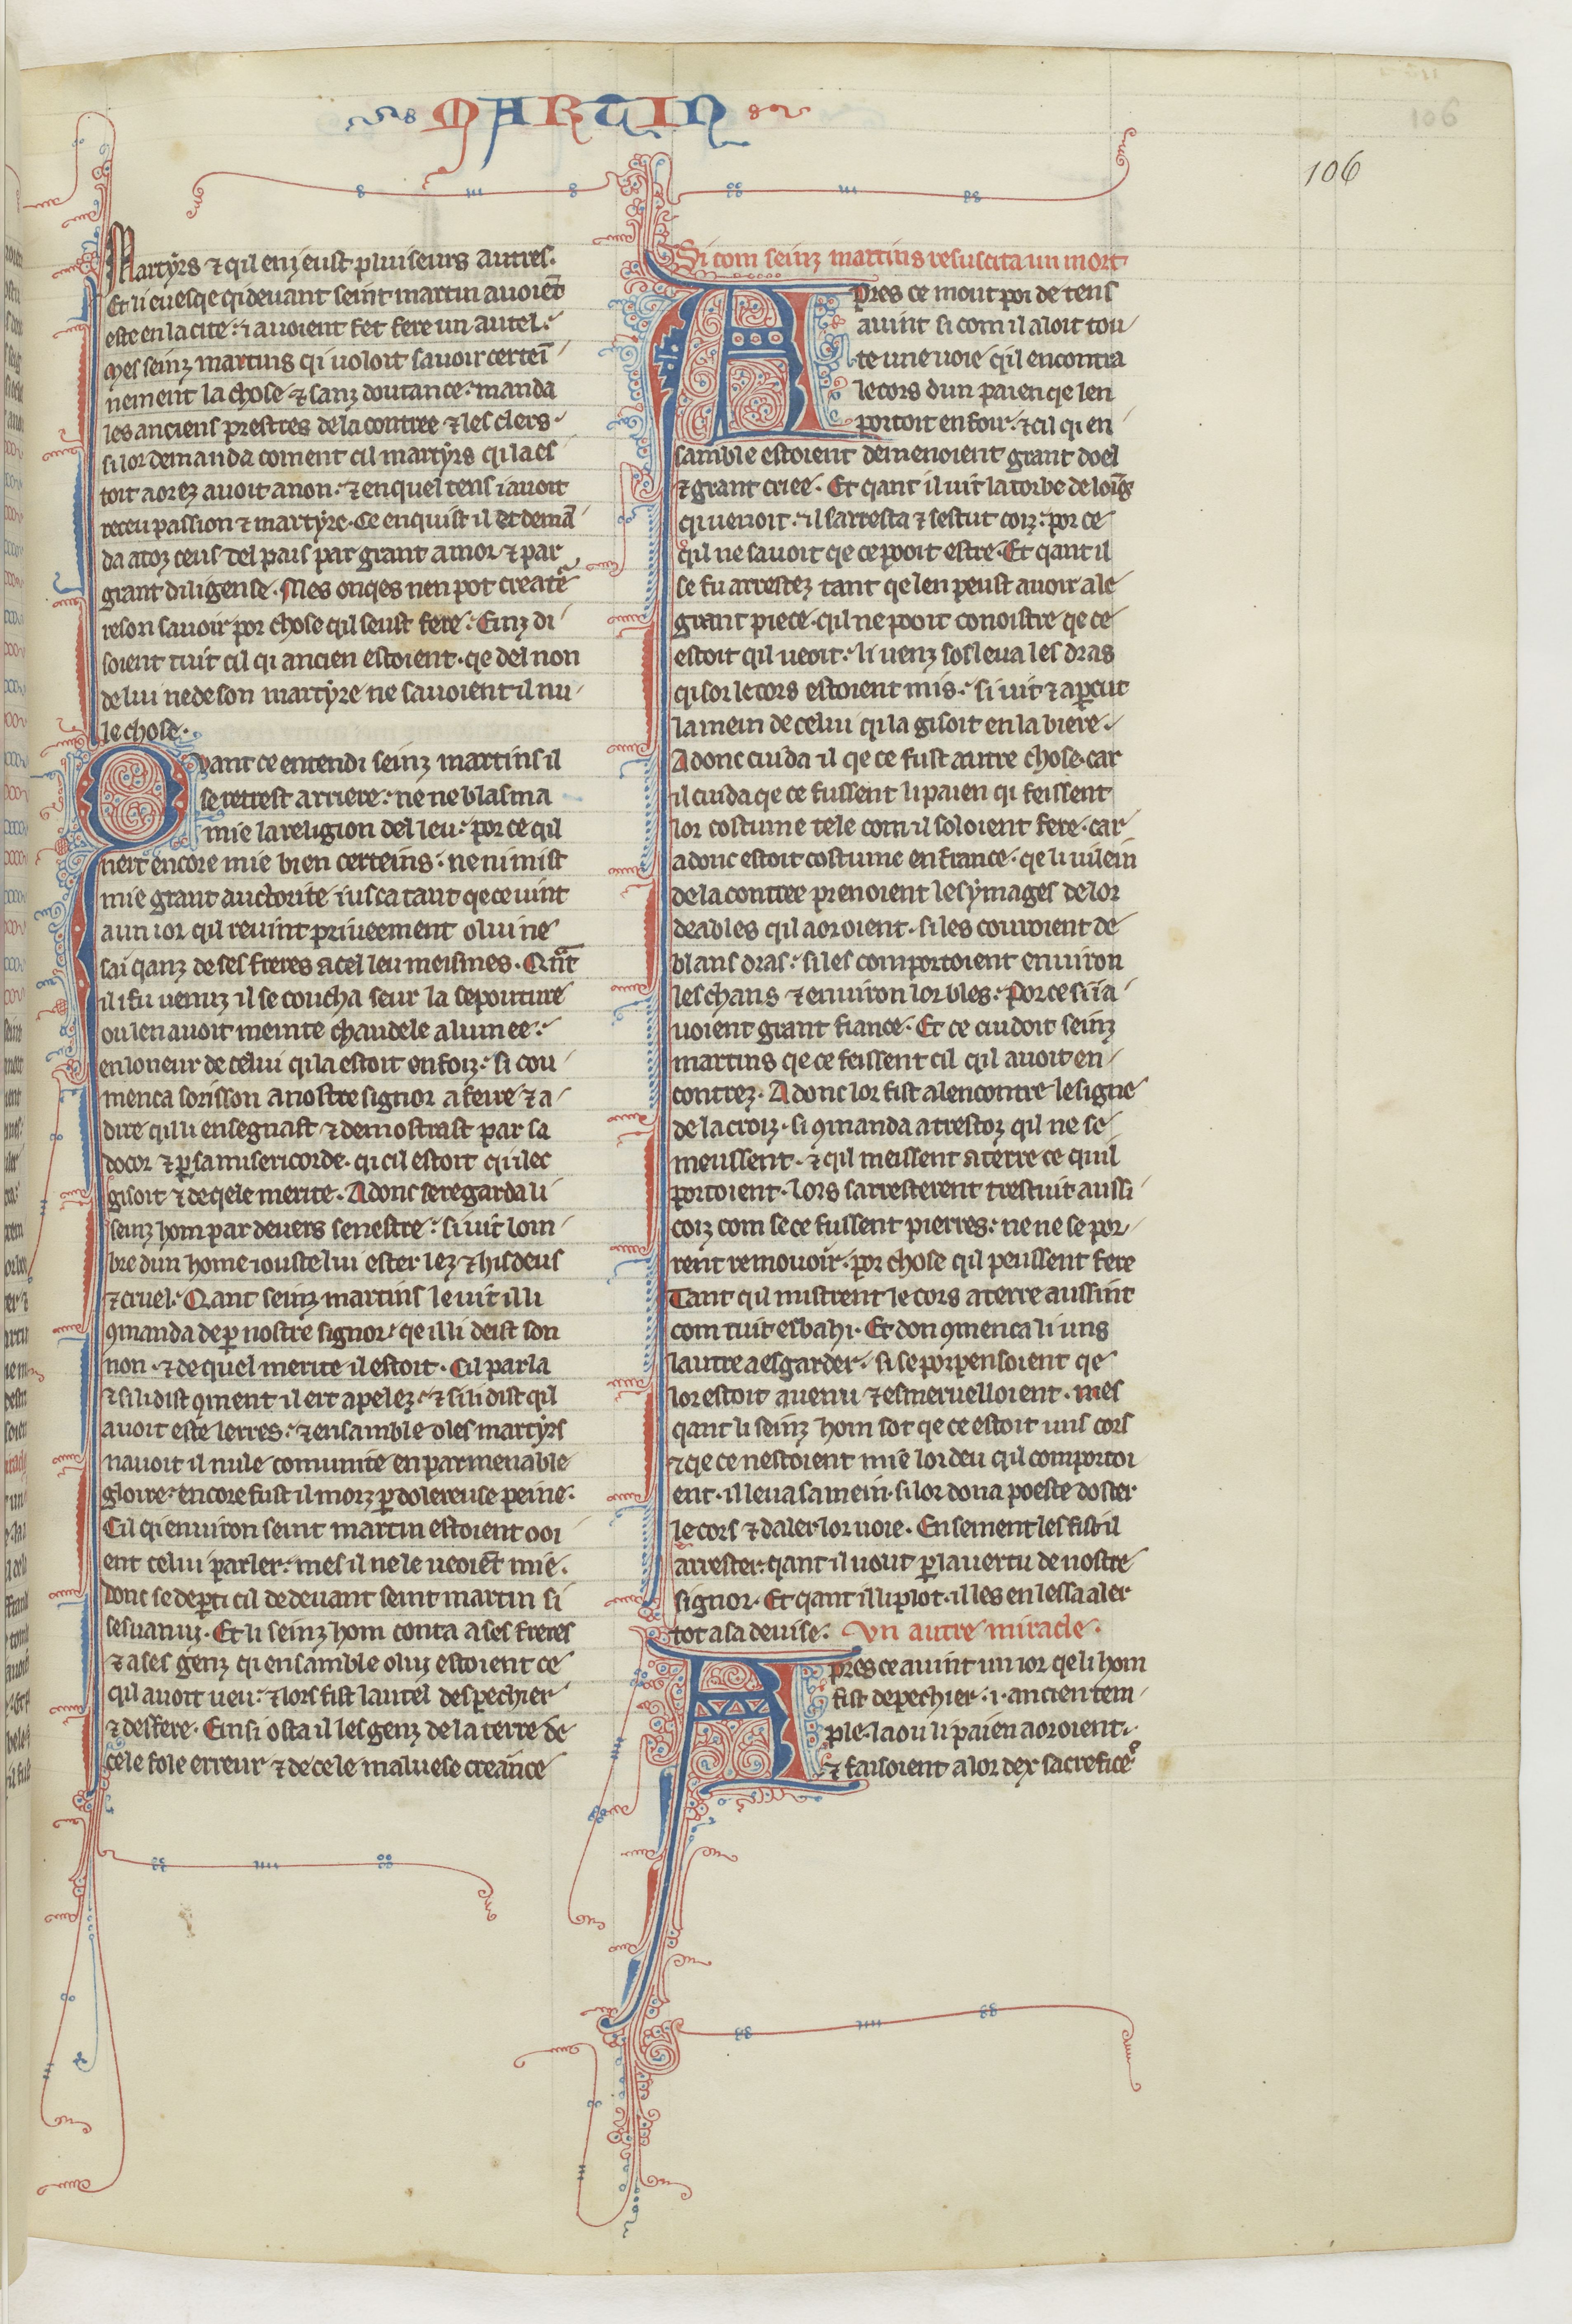 MARTIN
106
106
Martyrs ⁊ qil enz eust pluiseurs autres.
Et li euesqe qi deuant seint martin auoiēt
este en la cite. i auoient fet fere un autel.
Mes seinz martins qi uoloit sauoir certeī
nement la chose ⁊ sanz doutance. manda
les anciens prestres de la contree ⁊ les clers.
si lor demanda coment cil martyrs qi la es
toit aorez auoit a non. ⁊ en quel tens i auoit
receu passion ⁊ martyre. Ce enquist il et demā
da a toz ceus del pais par grant amor ⁊ par
grant diligense. Mes onqes nen pot creatē
re son sauoir por chose qil seust fere. Einz di
soient tuit cil qi ancien estoient. qe del non
de lui ne de son martyre ne sauoient il nu
le chose.
Qvant ce entendi seinz martins il
se retrest arriere. ne ne blasma
mie la religion del leu. por ce qil
nert encore mie bien certeins. ne ni mist
mie grant auctorite iusca tant qe ce uint
a un ior qil reuint priueement o lui ne
sai qanz de ses freres a cel leu meismes. Qnt
il i fu uenuz il se coucha seur la sepouture
ou len auoit meinte chandele alumee.
en loneur de celui qi la estoit enfoiz. si cou
menca sorisson a nostre signor a feire ⁊ a
dire qil li ensegnast ⁊ demostrast par sa
docor ⁊ p sa misericorde. qi cil estoit qi ilec
gisoit ⁊ de qele merite. Adonc se regarda li
seinz hom par deuers senestre. si uit lom
bre dun home iouste lui ester lez ⁊ hisdeus
⁊ cruel. Qant seinz martins le uit il li
ꝯmanda de p nostre signor. qe il li deist son
non. ⁊ de quel merite il estoit. Cil parla
⁊ si li dist ꝯment il ert apelez. ⁊ si li dist qil
auoit este lerres. ⁊ ensamble o les martyrs
nauoit il nule comunite en parmenable
gloire. encore fust il morz p dolereuse peine.
Cil qi enuiron seint martin estoient ooi
ent celui parler. mes il ne le ueoiēt mie.
donc se depti cil de deuant seint martin si
sesuanui. Et li seinz hom conta a ses freres
⁊ a ses genz qi ensamble o lui estoient ce
qil auoit ueu. ⁊ lors fist lautel despechier
⁊ desfere. Einsi osta il les genz de la terre de
cele fole erreur ⁊ de cele maluese creance
Si com seinz martins resuscita un mort
Apres ce mout poi de tens
auint si com il aloit tou
te une uoie qil encontra
le cors dun paien qe len
portoit enfoir. ⁊ cil qi en
samble estoient demenoient grant doel
⁊ grant criee. Et qant il uit la torbe de loīg
qi uenoit. il sarresta ⁊ sestut coiz. por ce
qil ne sauoit qe ce pooit estre. Et qant il
se fu arrestez tant qe len peust auoir ale
grant piece. qil ne pooit conoistre qe ce
estoit qil ueoit. li uenz sosleua les dras
qi sor le cors estoient mis. si uit ⁊ apcut
la mein de celui qi la gisoit en la biere.
Adonc cuida il qe ce fust autre chose. car
il cuida qe ce fussent li paien qi feissent
lor costume tele com il soloient fere. car
adonc estoit costume en france. qe li uilein
de la contree prenoient les ymages de lor
deables qil aoroient. si les couuroient de
blans dras. si les comportoient enuiron
les chans ⁊ enuiron lor bles. Por ce si i a
uoient grant fiance. Et ce cuidoit seinz
martins qe ce feissent cil qil auoit en
contrez. Adonc lor fist alencontre le signe
de la croiz. si ꝯmanda a trestoz qil ne se
meussent. ⁊ qil meissent a terre ce quil
portoient. Lors sarresterent trestuit aussi
coiz com se ce fussent pierres. ne ne se por
rent remouoir. por chose qil peussent fere
Tant qil mistrent le cors a terre aussint
com tuit esbahi. Et don ꝯmenca li uns
lautre a esgarder. si se porpensoient qe
lor estoit auenu ⁊ esmeruelloient. mes
qant li seinz hom sot qe ce estoit uns cors
⁊ qe ce nestoient mie lor deu qil comportoi
ent. il leua sa mein. si lor dona poeste doster
le cors ⁊ daler lor uoie. Ensement les fist il
arrester. qant il uout p la uertu de nostre
signor. Et qant il li plot. il les en lessa aler
tot a sa deuise. Vn autre miracle.
Apres ce auint un ior qe li hom
fist depechier .i. ancien tem
ple. la ou li paien aoroient.
⁊ faisoient a lor dex sacrefice